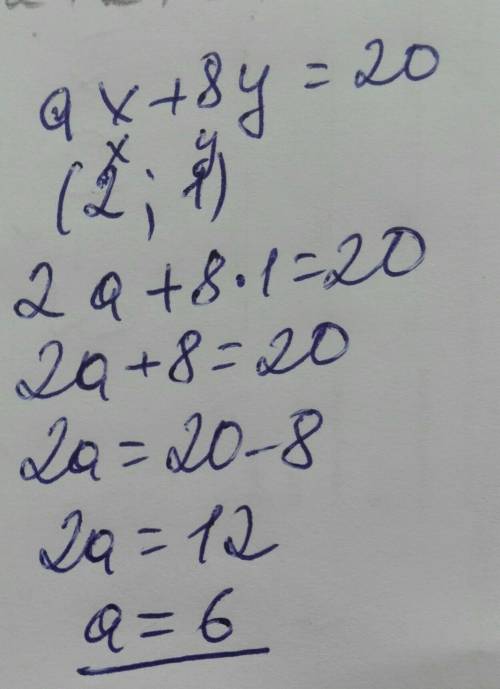 ax+8y=20
x y
(2; 1)
2a+8·1=20
2a+8=20
2a=20-8
2a=12
a=6